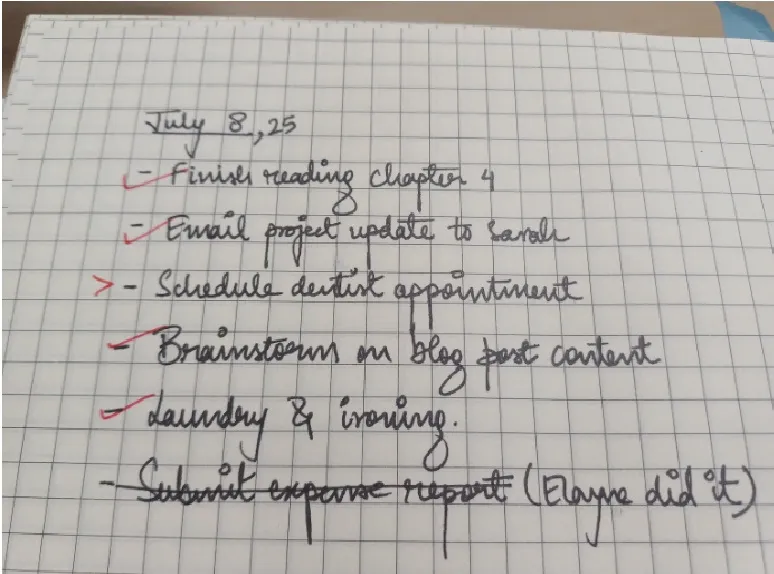 July 8, 25
- Finish reading chapter 4
- Email project update to Sarah
> - Schedule dentist appointment
- Brainstorm on blog post content
- Laundry & ironing.
- Submit expense report (Elayne did it)